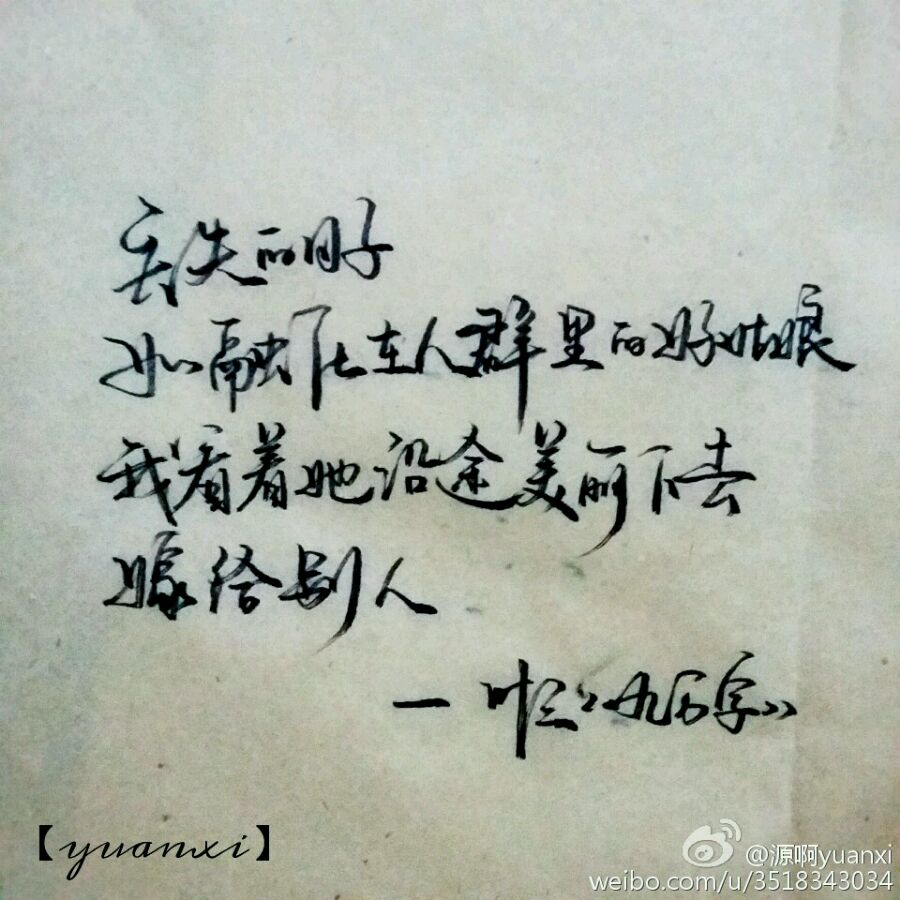 丢失的日子
如融化在人群里的好姑娘
我看着她沿途美丽下去
嫁给别人
一 叶三《九万字》
【yuanxi】
@源啊yuanxi
weibo.com/u/3518343034